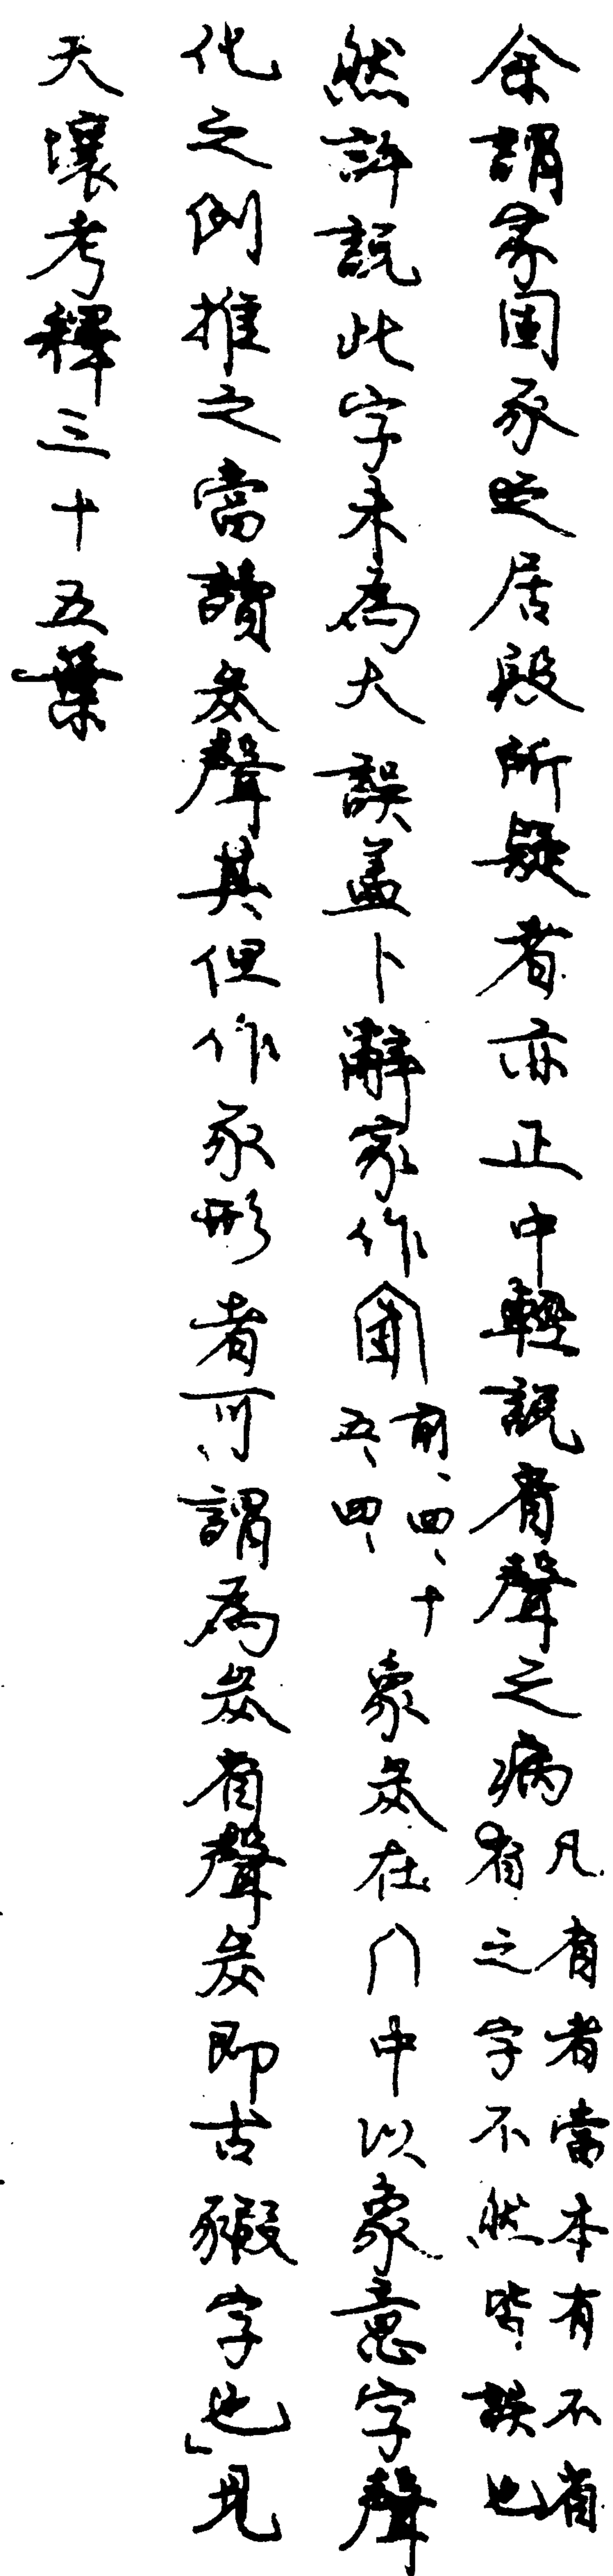 余謂家固豕居段所疑者亦正中輕說省聲之病
凡省者當本有不省
省之字不然皆誤也
然許說此字未為大誤蓋卜辭家作
前、四、十
五、四、
象在冂中以象意字聲
化之例推之當讀聲其但作豕形者可謂為省聲即古豭字也」見
天壤考釋三十五葉